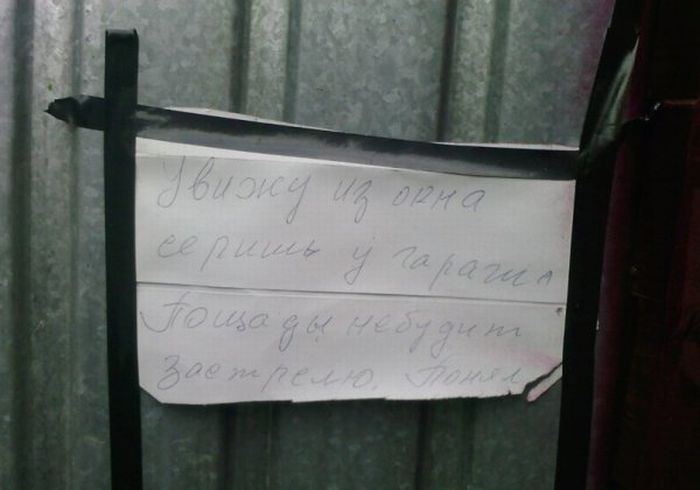 Увижу из окна
серишь у гаража
Пощады небудит
застрелю. Понял